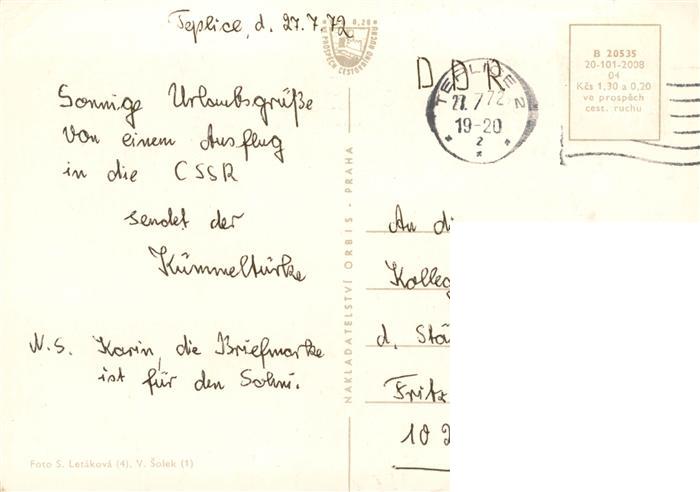 Teplice, d. 27.7.72
Sonnige Urlaubsgrüße
von einem Ausflug
in die CSSR
sendet der
Kümmeltürke
N.S. Karin, die Briefmarke
ist für den Sohni.
Foto S. Letáková (4), V. Šolek (1)
0,20
V PROSPĚCH CESTOVNÍHO RUCHU
NAKLADATELSTVÍ ORBIS - PRAHA
DDR
TEPLICE 2
27.7.72
19-20
z
B 20535
20-101-2008
04
Kčs 1,30 a 0,20
ve prospěch
cest. ruchu
An di
Kolleg
d. Stä
Fritz
10 2